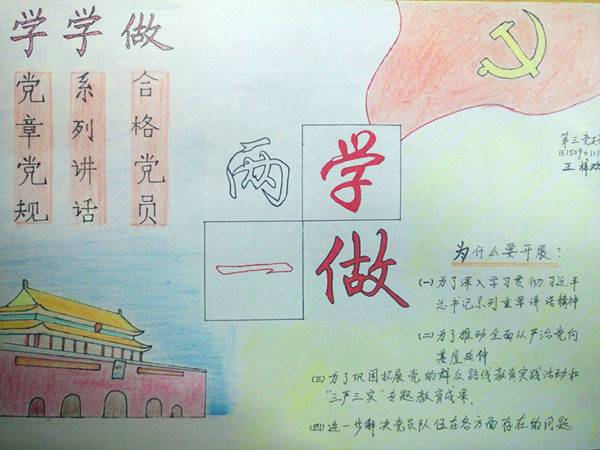 学学做
党章党规
系列讲话
合格党员
两学
一做
第三党支
B15090111
王梓欢
为什么要开展？
(一)为了深入学习贯彻习近平
总书记系列重要讲话精神
(二)为了推动全面从严治党向
基层延伸
(三)为了巩固拓展党的群众路线教育实践活动和
"三严三实"专题教育成果。
(四)进一步解决党员队伍在各方面存在的问题